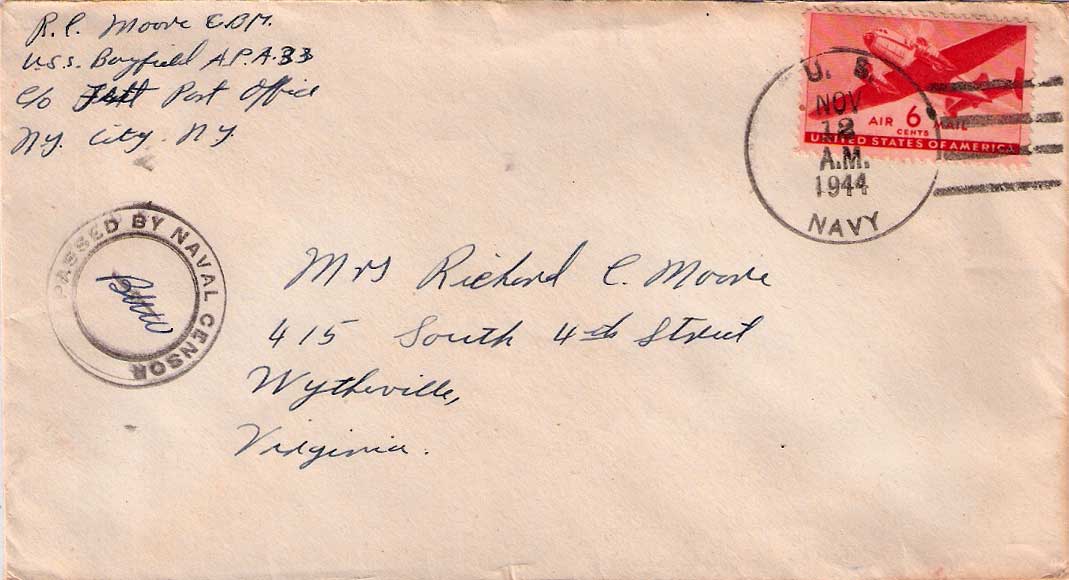 R. C. Moore C.B.M.
U.S.S. Bayfield A.P.A. 33
c/o Post Office
N.Y. City. N.Y.
U. S.
NOV
12
A.M.
1944
NAVY
AIR 6 MAIL
CENTS
UNITED STATES OF AMERICA
PASSED BY NAVAL CENSOR
Mrs Richard C. Moore
415 South 4th Street
Wytheville,
Virginia.